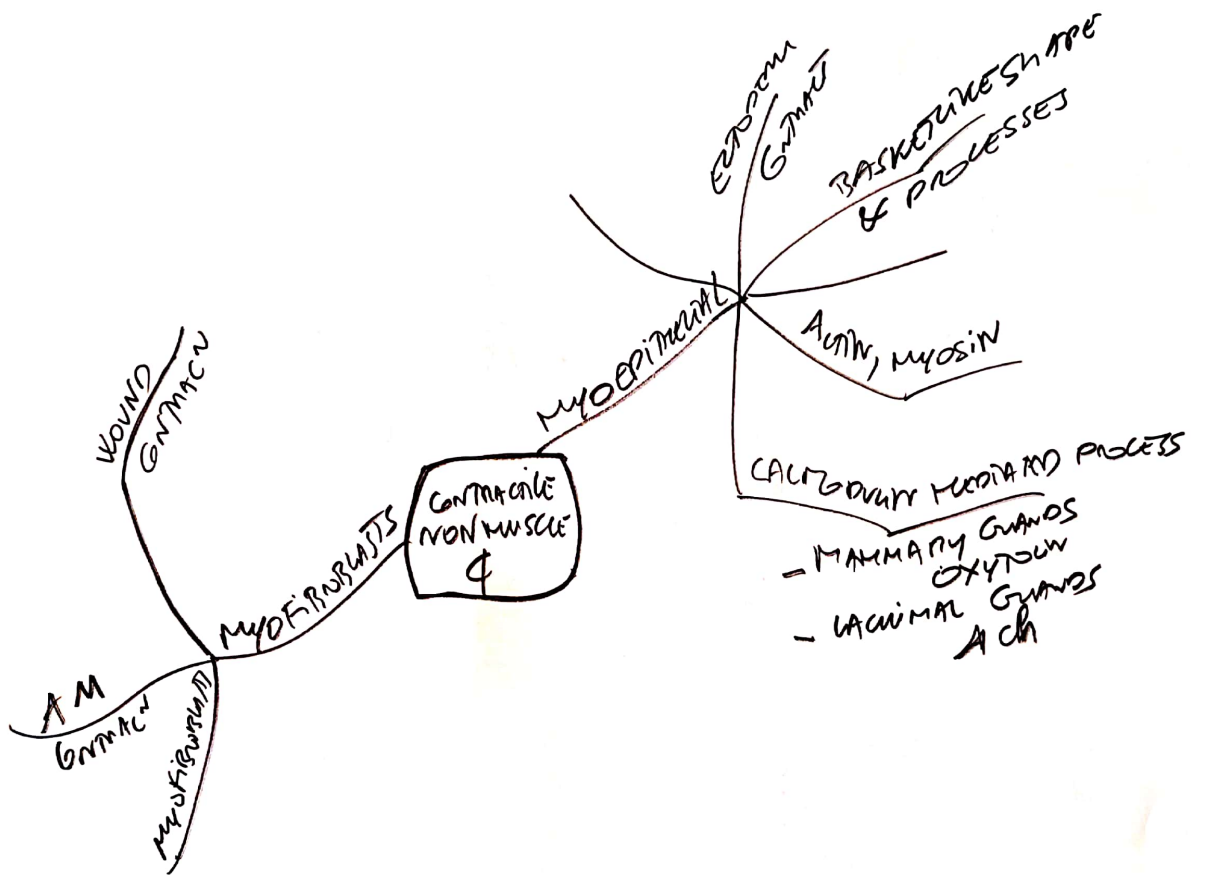 CONTRACTILE
NON MUSCLE
₵
MYOEPITHELIAL
ECTODERM
CONTRACT
BASKETLIKE SHAPE
& PROCESSES
ACTIN, MYOSIN
CALMODULIN MEDIATED PROCESS
- MAMMARY GLANDS
OXYTOCIN
- LACRIMAL GLANDS
ACh
MYOFIBROBLASTS
WOUND
CONTRACN
AM
CONTRACN
MYOFIBROBLAST